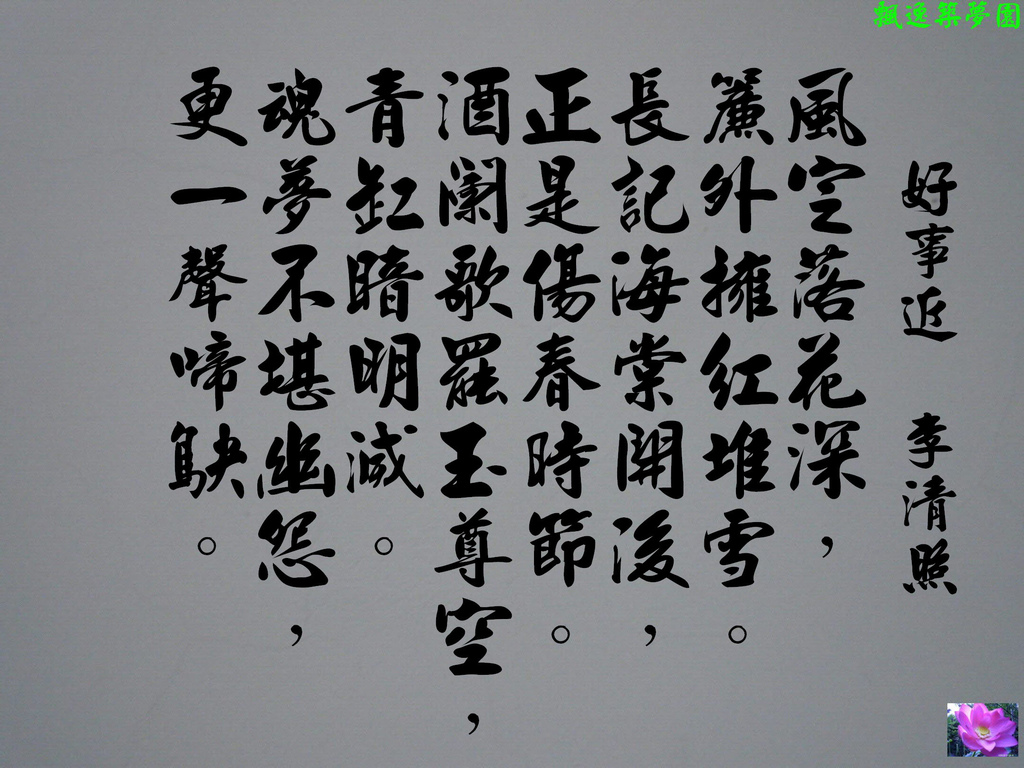 飄逸築夢園
好事近 李清照
風定落花深，
簾外擁紅堆雪。
長記海棠開後，
正是傷春時節。
酒闌歌罷玉尊空，
青缸暗明滅。
魂夢不堪幽怨，
更一聲啼駃。